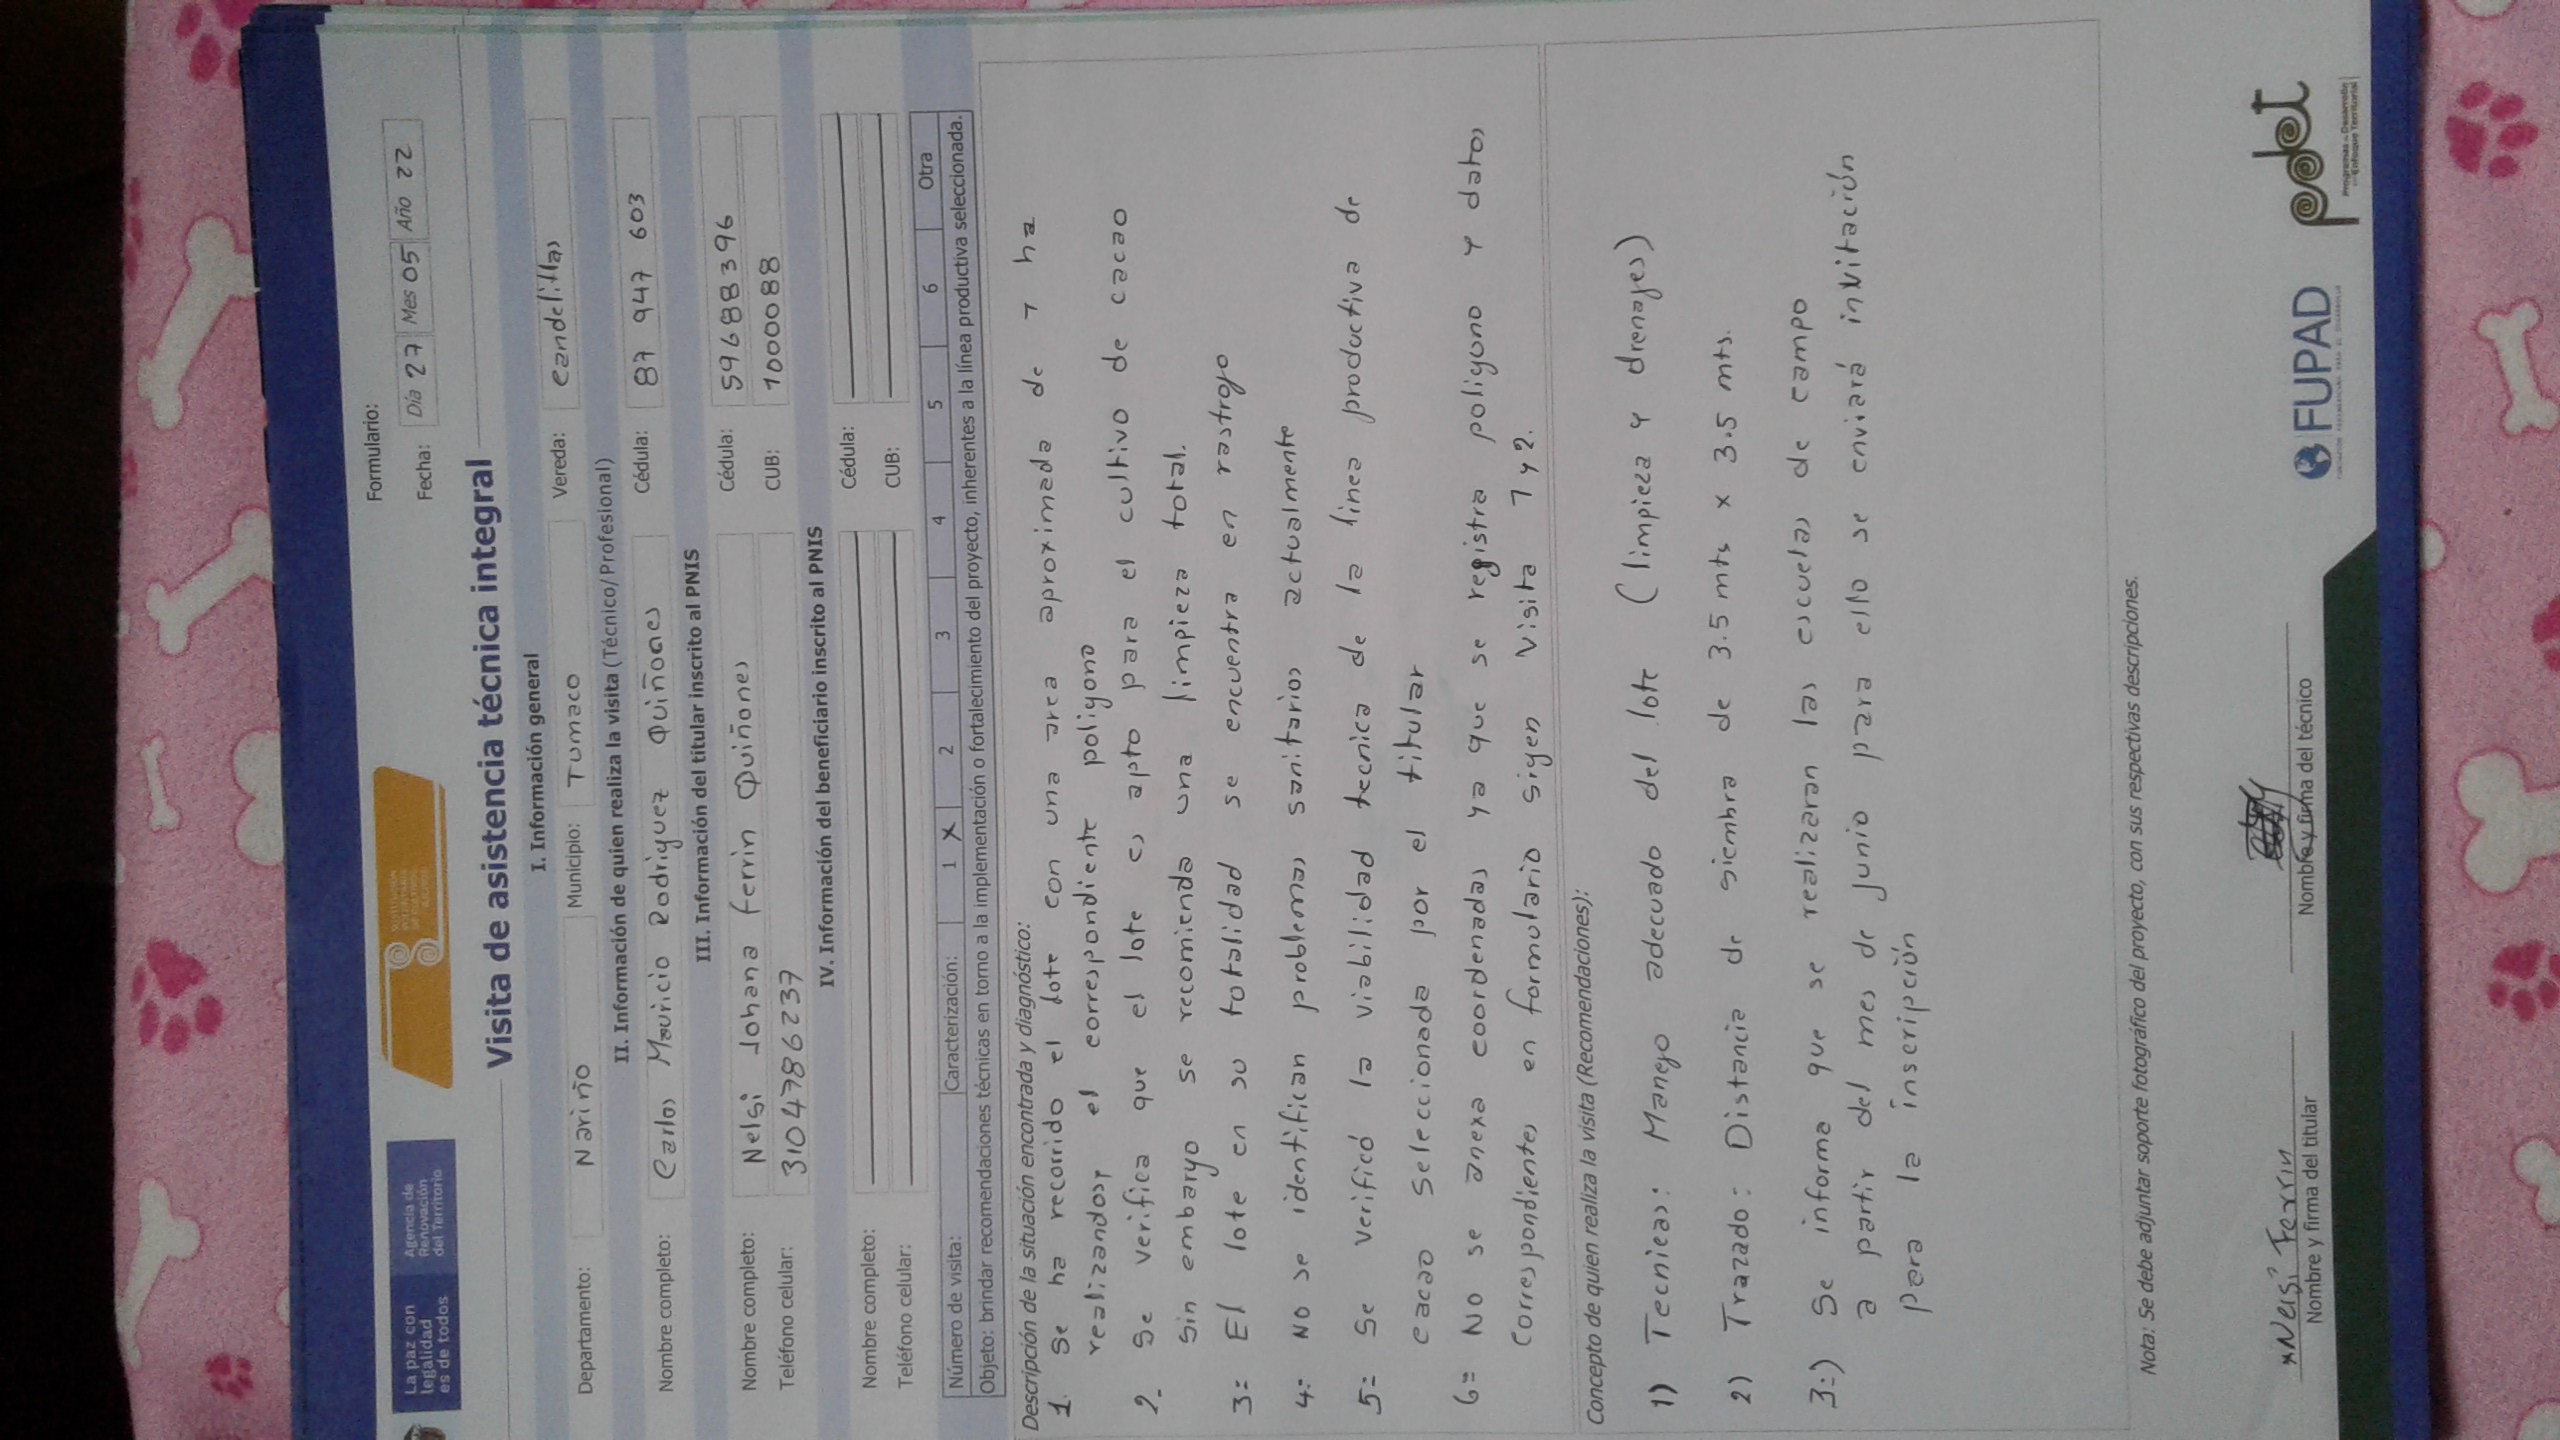 La paz con
legalidad
es de todos
Agencia de
Renovación
del Territorio
Formulario:
Fecha: Día 27 Mes 05 Año 22
Visita de asistencia técnica integral
I. Información general
Departamento: Nariño Municipio: Tumaco Vereda: Candelillas
II. Información de quien realiza la visita (Técnico/Profesional)
Nombre completo: Carlos Mauricio Rodriguez Quiñones Cédula: 87 947 603
III. Información del titular inscrito al PNIS
Nombre completo: Nelsi Johana Ferrin Quiñones Cédula: 59688396
Teléfono celular: 3104786237 CUB: 1000088
IV. Información del beneficiario inscrito al PNIS
Nombre completo: Cédula:
Teléfono celular: CUB:
Número de visita: Caracterización: 1 X 2 3 4 5 6 Otra
Objeto: brindar recomendaciones técnicas en torno a la implementación o fortalecimiento del proyecto, inherentes a la línea productiva seleccionada.
Descripción de la situación encontrada y diagnóstico:
1. Se ha recorrido el lote con una area aproximada de 1 ha
realizandose el correspondiente poligono
2. Se verifica que el lote es apto para el cultivo de cacao
sin embargo se recomienda una limpieza total.
3= El lote en su totalidad se encuentra en rastrojo
4= No se identifican problemas sanitarios actualmente
5= Se verificó la viabilidad tecnica de la linea productiva de
cacao seleccionada por el titular
6= No se anexa coordenadas ya que se registra poligono y datos
correspondientes en formulario sigen visita 1 y 2.
Concepto de quien realiza la visita (Recomendaciones):
1) Tecnicas: Manejo adecuado del lote (limpieza y drenajes)
2) Trazado: Distancia de siembra de 3.5 mts x 3.5 mts.
3:) Se informa que se realizaran las escuelas de campo
a partir del mes de junio para ello se enviará invitación
para la inscripción
Nota: Se debe adjuntar soporte fotográfico del proyecto, con sus respectivas descripciones.
x Nelsi Ferrin
Nombre y firma del titular
Nombre y firma del técnico
FUPAD
pdet
Programas de Desarrollo
con Enfoque Territorial